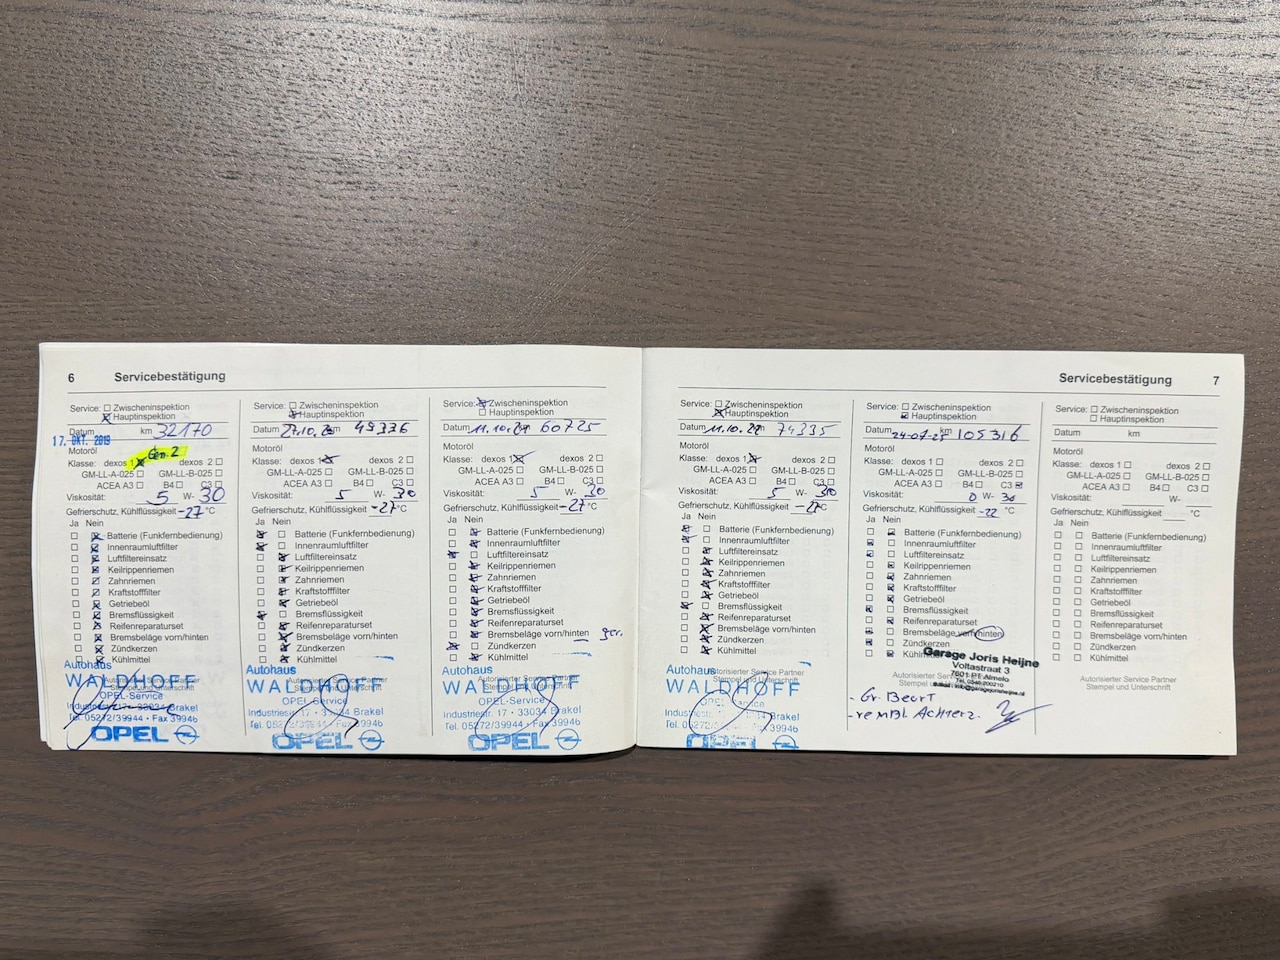 6 Servicebestätigung
Service: Zwischeninspektion
Hauptinspektion
Datum km 32170
17. OKT. 2019
Motoröl Gen 2
Klasse: dexos 1 dexos 2
GM-LL-A-025 GM-LL-B-025
ACEA A3 B4 C3
Viskosität: 5 W- 30
Gefrierschutz, Kühlflüssigkeit -27 °C
Ja Nein
Batterie (Funkfernbedienung)
Innenraumluftfilter
Luftfiltereinsatz
Keilrippenriemen
Zahnriemen
Kraftstofffilter
Getriebeöl
Bremsflüssigkeit
Reifenreparaturset
Bremsbeläge vorn/hinten
Zündkerzen
Kühlmittel
Autohaus
WALDHOFF
OPEL-Service
Industriestr. 17 · 33034 Brakel
Tel. 05272/39944 · Fax 39946
OPEL
Service: Zwischeninspektion
Hauptinspektion
Datum km 49336
Motoröl
Klasse: dexos 1 dexos 2
GM-LL-A-025 GM-LL-B-025
ACEA A3 B4 C3
Viskosität: 5 W- 30
Gefrierschutz, Kühlflüssigkeit -27 °C
Ja Nein
Batterie (Funkfernbedienung)
Innenraumluftfilter
Luftfiltereinsatz
Keilrippenriemen
Zahnriemen
Kraftstofffilter
Getriebeöl
Bremsflüssigkeit
Reifenreparaturset
Bremsbeläge vorn/hinten
Zündkerzen
Kühlmittel
Autohaus
WALDHOFF
OPEL-Service
Industriestr. 17 · 33034 Brakel
Tel. 05272/39944 · Fax 39946
OPEL
Service: Zwischeninspektion
Hauptinspektion
Datum km 60725
Motoröl
Klasse: dexos 1 dexos 2
GM-LL-A-025 GM-LL-B-025
ACEA A3 B4 C3
Viskosität: 5 W- 30
Gefrierschutz, Kühlflüssigkeit -27 °C
Ja Nein
Batterie (Funkfernbedienung)
Innenraumluftfilter
Luftfiltereinsatz
Keilrippenriemen
Zahnriemen
Kraftstofffilter
Getriebeöl
Bremsflüssigkeit
Reifenreparaturset
Bremsbeläge vorn/hinten
Zündkerzen
Kühlmittel
Autohaus
WALDHOFF
OPEL-Service
Industriestr. 17 · 33034 Brakel
Tel. 05272/39944 · Fax 39946
OPEL
Servicebestätigung 7
Service: Zwischeninspektion
Hauptinspektion
Datum km 74335
Motoröl
Klasse: dexos 1 dexos 2
GM-LL-A-025 GM-LL-B-025
ACEA A3 B4 C3
Viskosität: 5 W- 30
Gefrierschutz, Kühlflüssigkeit °C
Ja Nein
Batterie (Funkfernbedienung)
Innenraumluftfilter
Luftfiltereinsatz
Keilrippenriemen
Zahnriemen
Kraftstofffilter
Getriebeöl
Bremsflüssigkeit
Reifenreparaturset
Bremsbeläge vorn/hinten
Zündkerzen
Kühlmittel
Autohaus
Autorisierter Service Partner
WALDHOFF
Brakel
Fax 39946
OPEL
Service: Zwischeninspektion
Hauptinspektion
Datum 24-07-25 km 105316
Motoröl
Klasse: dexos 1 dexos 2
GM-LL-A-025 GM-LL-B-025
ACEA A3 B4 C3
Viskosität: 0 W- 30
Gefrierschutz, Kühlflüssigkeit -22 °C
Ja Nein
Batterie (Funkfernbedienung)
Innenraumluftfilter
Luftfiltereinsatz
Keilrippenriemen
Zahnriemen
Kraftstofffilter
Getriebeöl
Bremsflüssigkeit
Reifenreparaturset
Bremsbeläge vorn/hinten
Zündkerzen
Kühlmittel
Garage Joris Heijne
Voltastraat 3
7601 Almelo
Tel. 0546-200210
- Gr Beurt
Service: Zwischeninspektion
Hauptinspektion
Datum km
Motoröl
Klasse: dexos 1 dexos 2
GM-LL-A-025 GM-LL-B-025
ACEA A3 B4 C3
Viskosität: W-
Gefrierschutz, Kühlflüssigkeit °C
Ja Nein
Batterie (Funkfernbedienung)
Innenraumluftfilter
Luftfiltereinsatz
Keilrippenriemen
Zahnriemen
Kraftstofffilter
Getriebeöl
Bremsflüssigkeit
Reifenreparaturset
Bremsbeläge vorn/hinten
Zündkerzen
Kühlmittel
Autorisierter Service Partner
Stempel und Unterschrift